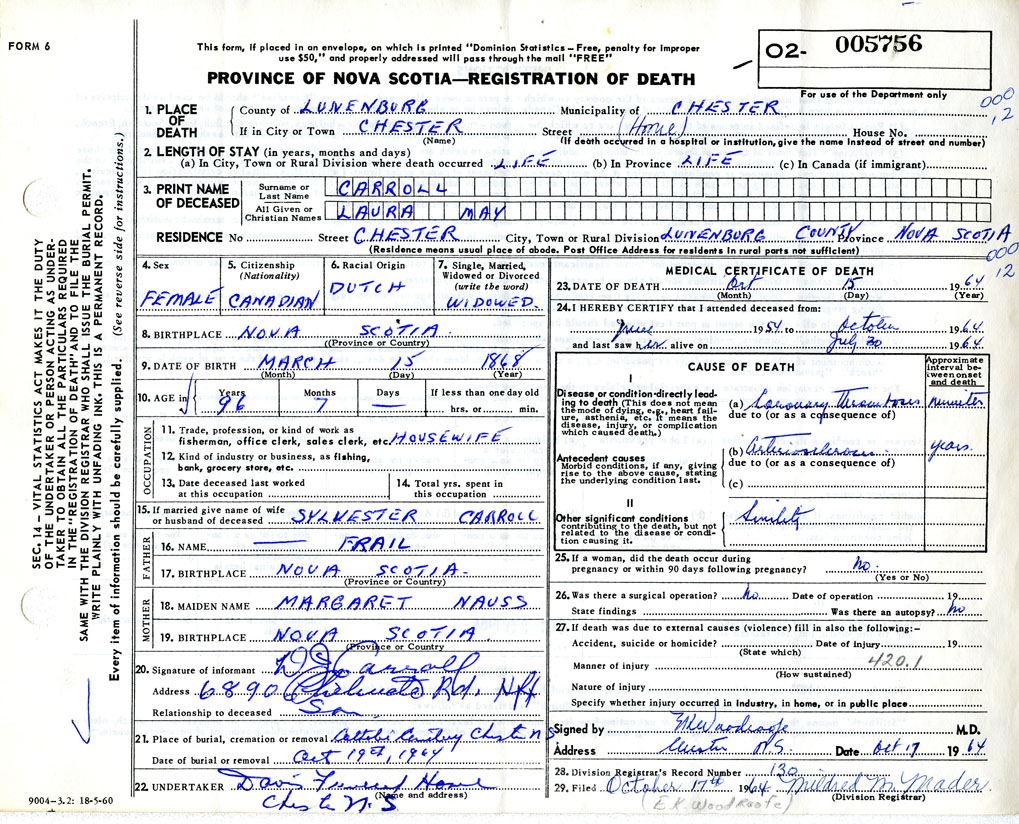 FORM 6
This form, if placed in an envelope, on which is printed "Dominion Statistics – Free, penalty for improper
use $50," and properly addressed will pass through the mail "FREE"
PROVINCE OF NOVA SCOTIA—REGISTRATION OF DEATH
O2- 005756
For use of the Department only
000
12
1. PLACE OF DEATH County of LUNENBURG Municipality of CHESTER
If in City or Town CHESTER Street (Home) House No.
(Name) (If death occurred in a hospital or institution, give the name instead of street and number)
2. LENGTH OF STAY (in years, months and days)
(a) In City, Town or Rural Division where death occurred LIFE (b) In Province LIFE (c) In Canada (if immigrant)
3. PRINT NAME OF DECEASED
Surname or Last Name CARROLL
All Given or Christian Names LAURA MAY
RESIDENCE No Street CHESTER City, Town or Rural Division LUNENBURG COUNTY Province NOVA SCOTIA
(Residence means usual place of abode. Post Office Address for residents in rural parts not sufficient)
000
12
4. Sex
FEMALE
5. Citizenship
(Nationality)
CANADIAN
6. Racial Origin
DUTCH
7. Single, Married,
Widowed or Divorced
(write the word)
WIDOWED.
8. BIRTHPLACE NOVA SCOTIA.
((Province or Country)
9. DATE OF BIRTH MARCH 15 1868
(Month) (Day) (Year)
10. AGE in Years Months Days If less than one day old
96 7 — hrs. or min.
OCCUPATION
11. Trade, profession, or kind of work as
fisherman, office clerk, sales clerk, etc. HOUSEWIFE
12. Kind of industry or business, as fishing,
bank, grocery store, etc.
13. Date deceased last worked
at this occupation
14. Total yrs. spent in
this occupation
15. If married give name of wife
or husband of deceased SYLVESTER CARROLL
FATHER
16. NAME — FRAIL
17. BIRTHPLACE NOVA SCOTIA.
(Province or Country)
MOTHER
18. MAIDEN NAME MARGARET NAUSS
19. BIRTHPLACE NOVA SCOTIA.
(Province or Country
20. Signature of informant Carroll
Address 6890 Rd, Hfx
Relationship to deceased Son.
21. Place of burial, cremation or removal Chester N S
Date of burial or removal Oct 19th, 1964
22. UNDERTAKER Davis Funeral Home
(Name and address)
Chester N.S
9004-3.2: 18-5-60
MEDICAL CERTIFICATE OF DEATH
23. DATE OF DEATH Oct 15 1964
(Month) (Day) (Year)
24. I HEREBY CERTIFY that I attended deceased from:
June 1954 to October 1964
and last saw her alive on July 30 1964.
CAUSE OF DEATH
Approximate
interval be-
tween onset
and death
I
Disease or condition directly lead-
ing to death (This does not mean
the mode of dying, e.g., heart fail-
ure, asthenia, etc. It means the
disease, injury, or complication
which caused death.)
(a) Coronary Thrombosis minutes
due to (or as a consequence of)
Antecedent causes
Morbid conditions, if any, giving
rise to the above cause, stating
the underlying condition last.
(b) Arteriosclerosis years.
due to (or as a consequence of)
(c)
II
Other significant conditions
contributing to the death, but not
related to the disease or condi-
tion causing it.
Senility
25. If a woman, did the death occur during
pregnancy or within 90 days following pregnancy? No.
(Yes or No)
26. Was there a surgical operation? No. Date of operation 19
State findings Was there an autopsy? No
27. If death was due to external causes (violence) fill in also the following:–
Accident, suicide or homicide? Date of injury 19
(State which)
420.1
Manner of injury
(How sustained)
Nature of injury
Specify whether injury occurred in industry, in home, or in public place
Signed by M.D.
Address Chester N.S. Date Oct 17 1964
28. Division Registrar's Record Number 130
29. Filed October 17th 1964 Mildred M. Meader
(Division Registrar)
(E.K. Woodroofe)
SEC. 14 – VITAL STATISTICS ACT MAKES IT THE DUTY
OF THE UNDERTAKER OR PERSON ACTING AS UNDER-
TAKER TO OBTAIN ALL THE PARTICULARS REQUIRED
IN THE "REGISTRATION OF DEATH" AND TO FILE THE
SAME WITH THE DIVISION REGISTRAR WHO SHALL ISSUE THE BURIAL PERMIT.
WRITE PLAINLY WITH UNFADING INK. THIS IS A PERMANENT RECORD.
Every item of information should be carefully supplied. (See reverse side for instructions.)